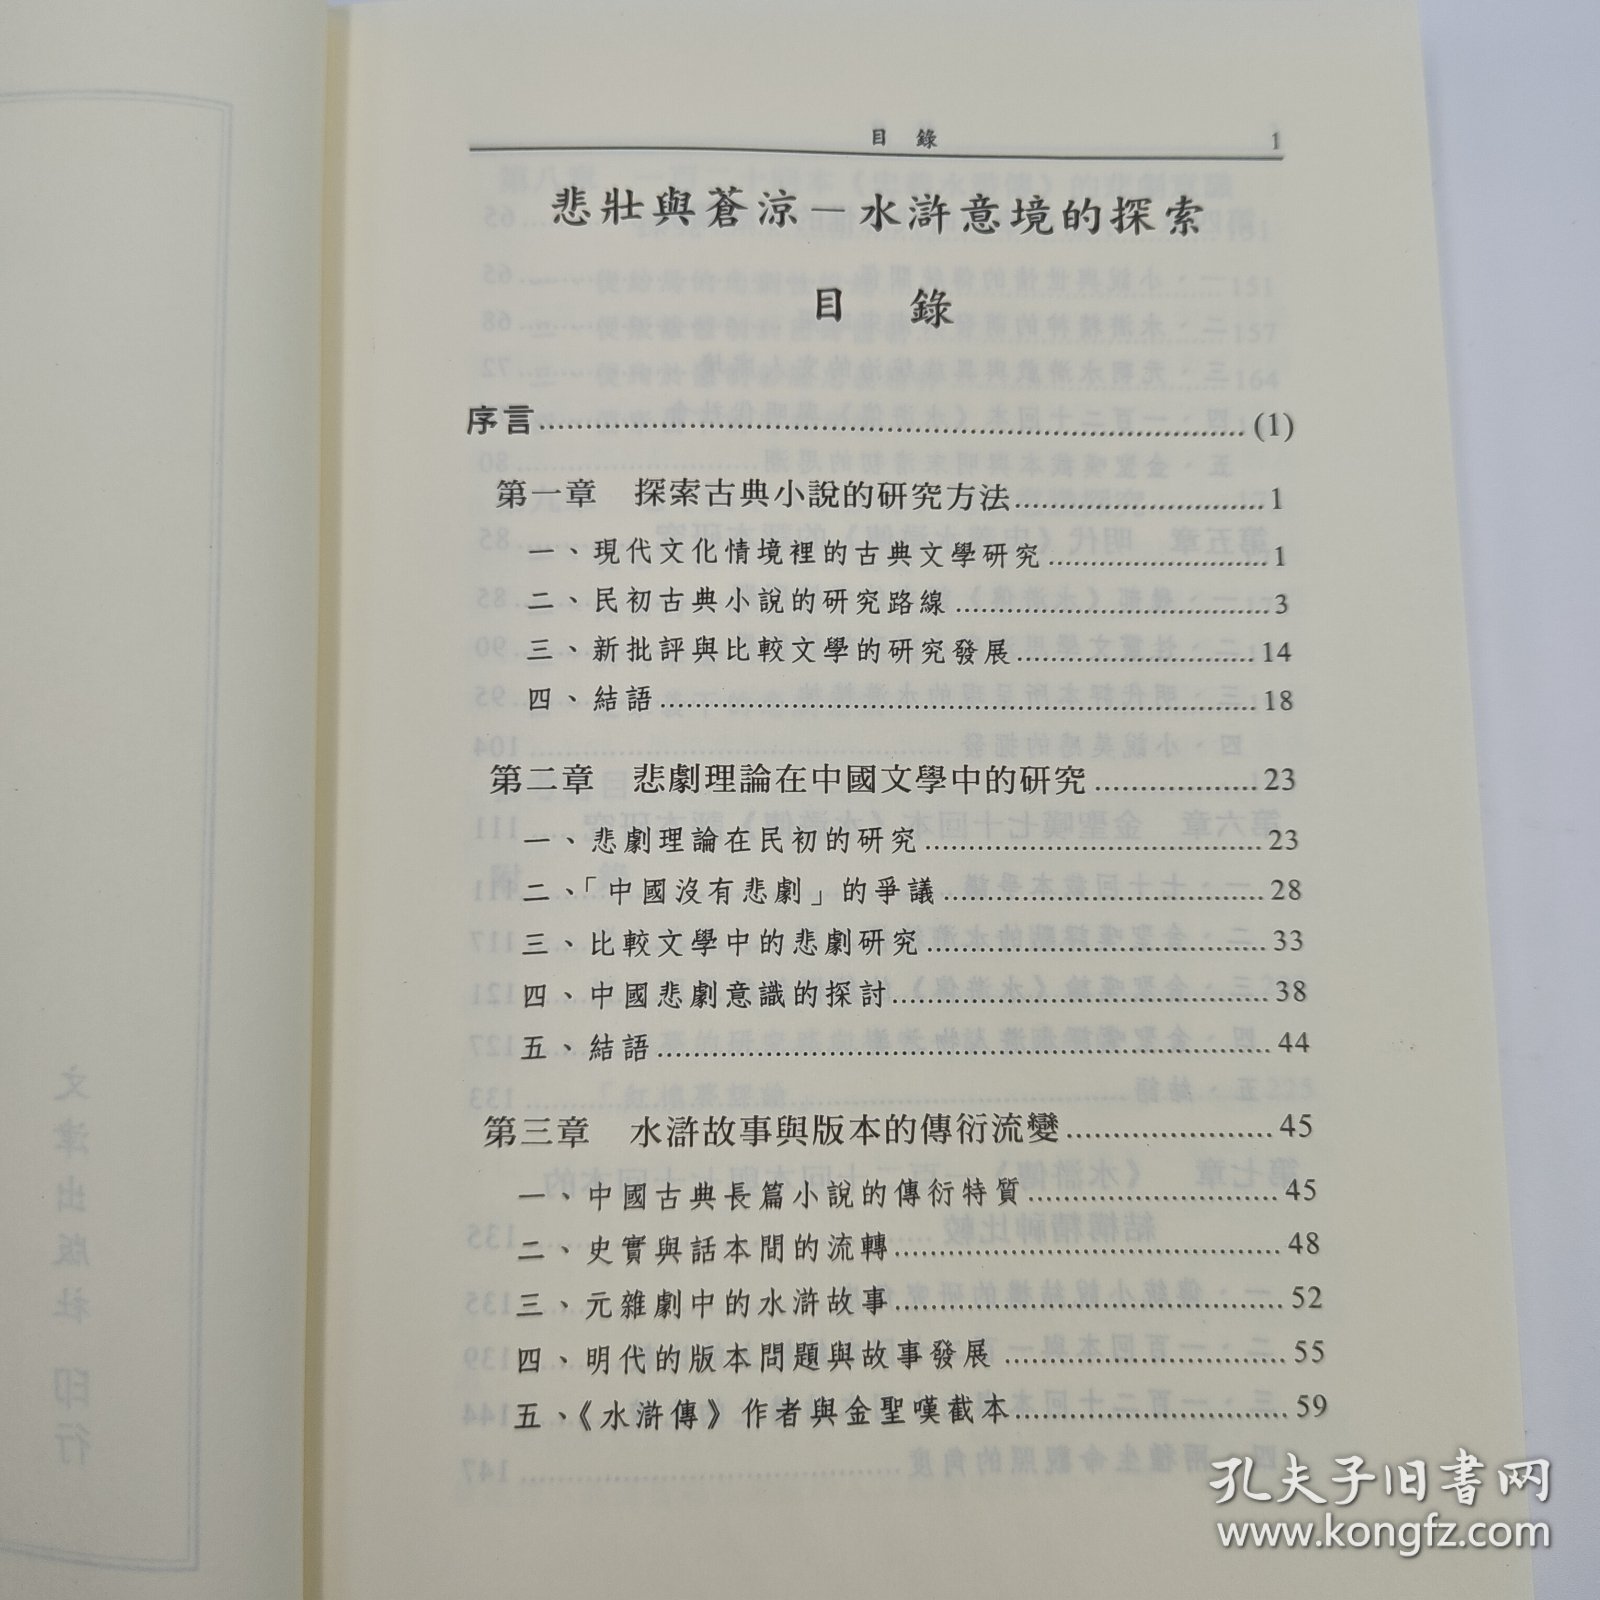 目 錄 1
悲壯與蒼涼－水滸意境的探索
目 錄
序言 (1)
第一章 探索古典小說的研究方法 1
一、現代文化情境裡的古典文學研究 1
二、民初古典小說的研究路線 3
三、新批評與比較文學的研究發展 14
四、結語 18
第二章 悲劇理論在中國文學中的研究 23
一、悲劇理論在民初的研究 23
二、「中國沒有悲劇」的爭議 28
三、比較文學中的悲劇研究 33
四、中國悲劇意識的探討 38
五、結語 44
第三章 水滸故事與版本的傳衍流變 45
一、中國古典長篇小說的傳衍特質 45
二、史實與話本間的流轉 48
三、元雜劇中的水滸故事 52
四、明代的版本問題與故事發展 55
五、《水滸傳》作者與金聖嘆截本 59
文津出版社 印行
孔夫子旧书网
www.kongfz.com